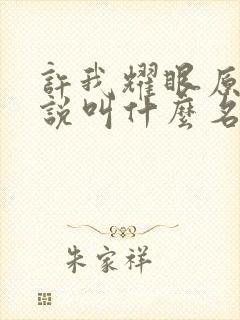 許我耀眼原
說叫什麼名
朱家祥